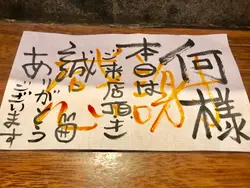 何様
本日は
ご来店頂き
誠に
ありがとう
ございます